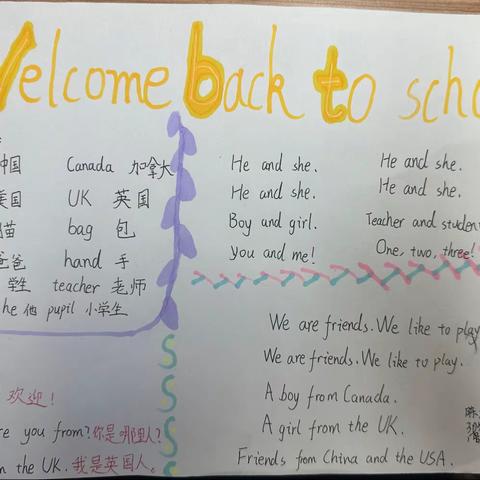 Welcome back to scho
中国 Canada 加拿大
美国 UK 英国
猫 bag 包
爸爸 hand 手
学生 teacher 老师
he 他 pupil 小学生
欢迎!
re you from? 你是哪里人?
the UK. 我是英国人。
He and she.
He and she.
Boy and girl.
You and me!
He and she.
He and she.
Teacher and studen
One, two, three!
We are friends. We like to play
We are friends. We like to play.
A boy from Canada.
A girl from the UK.
Friends from China and the USA.